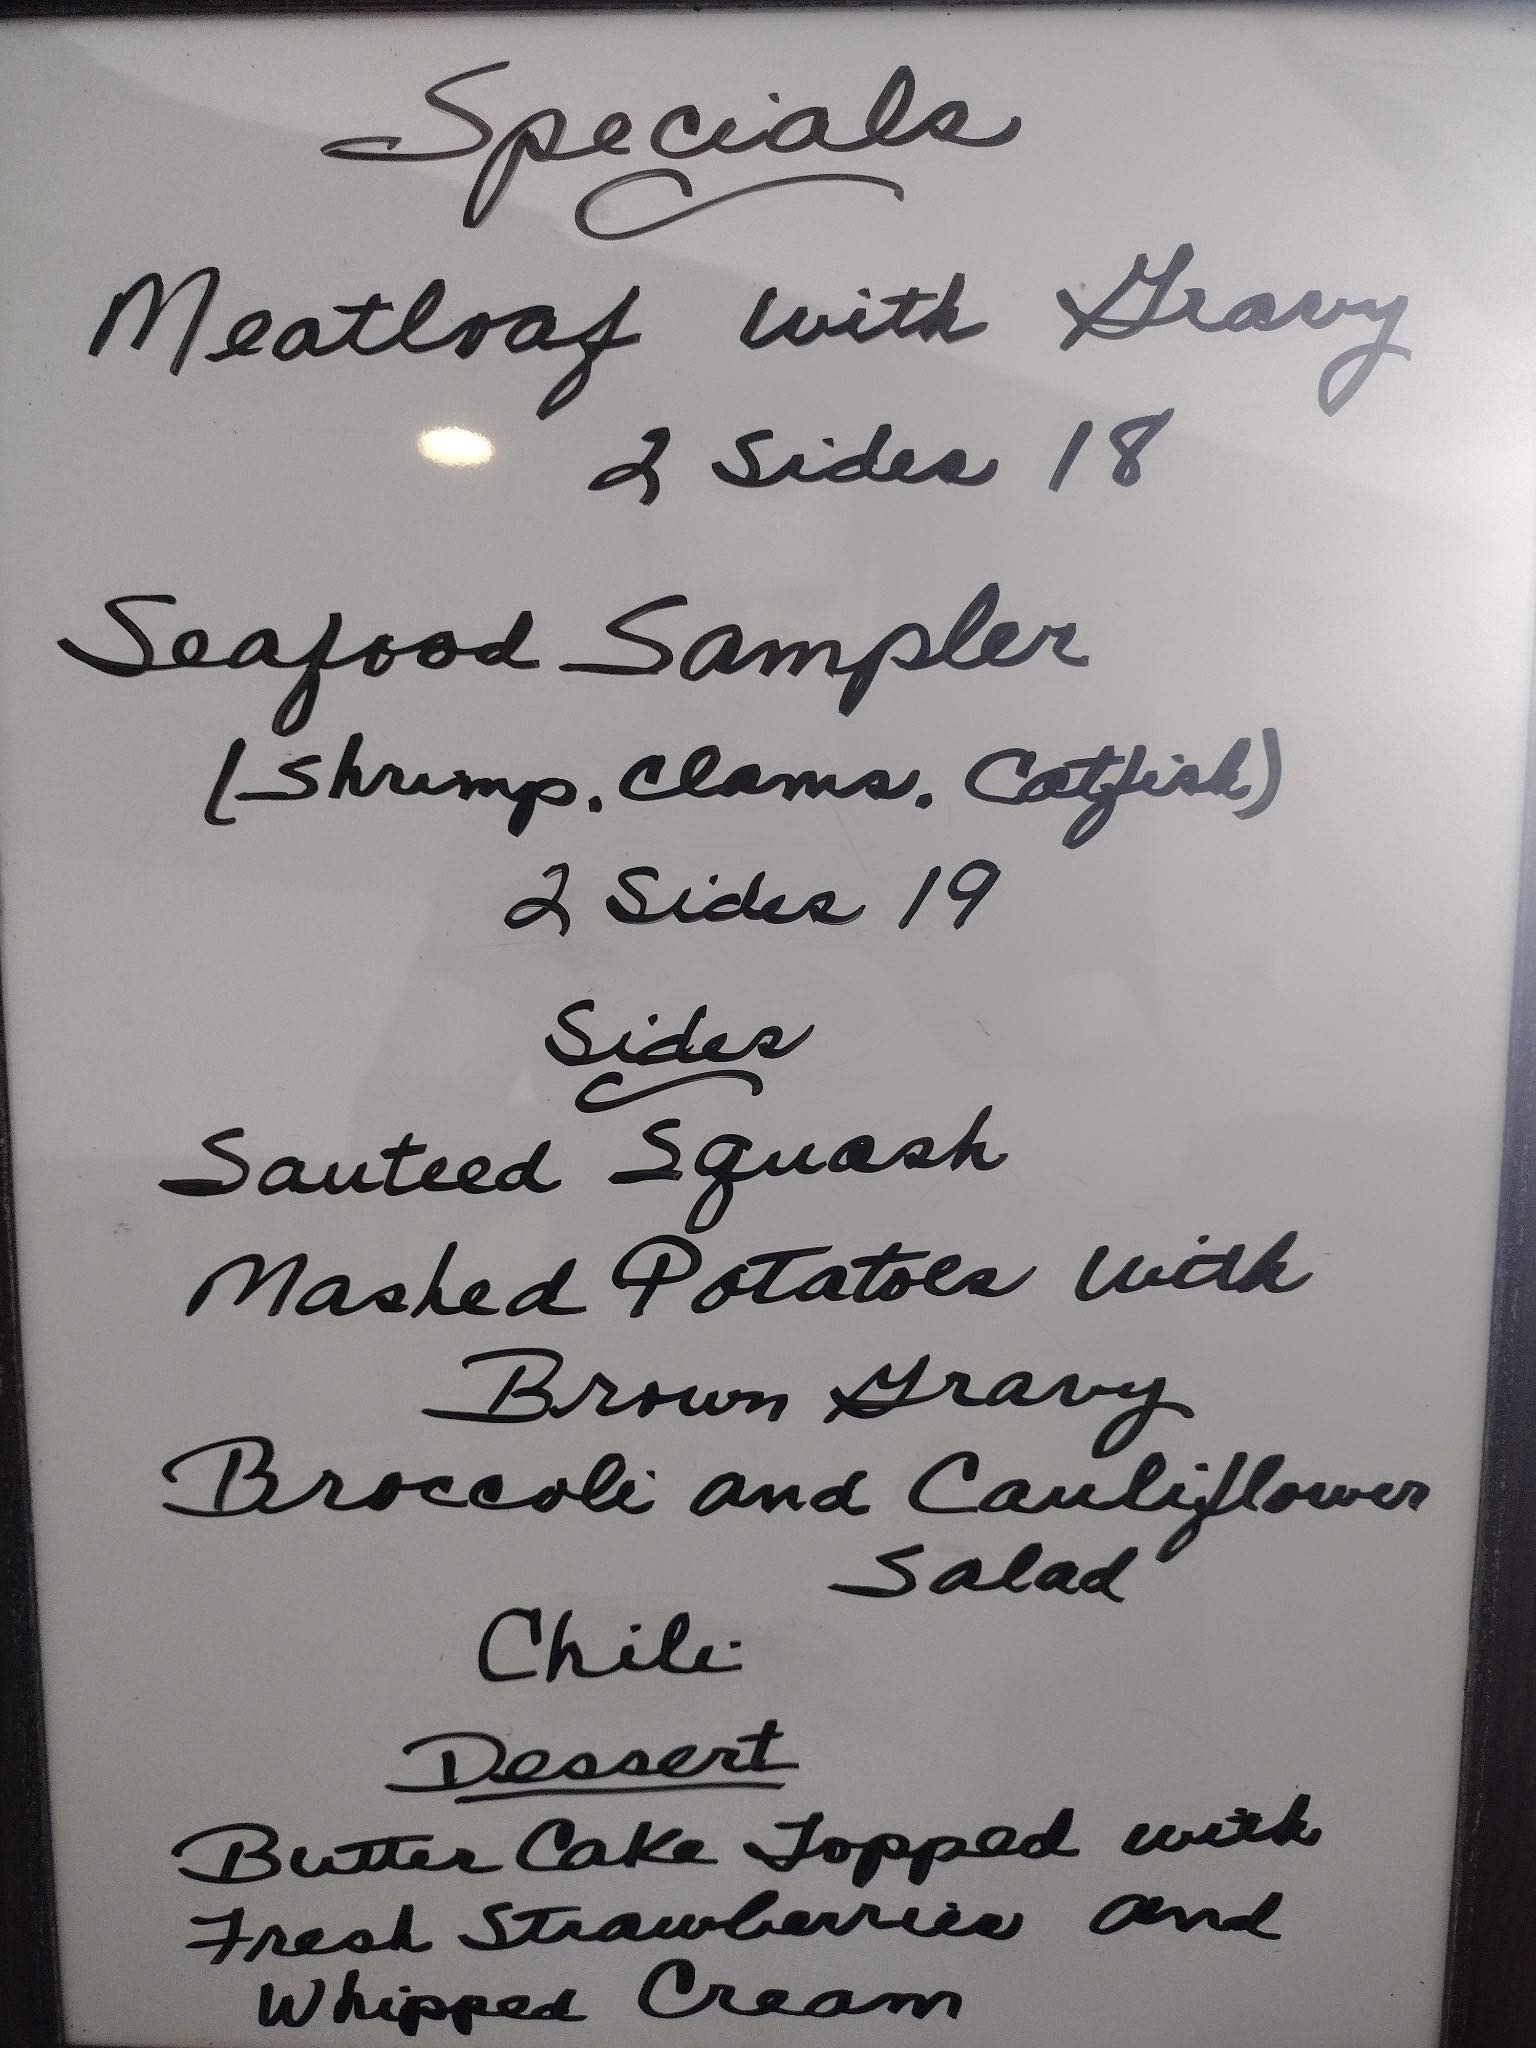 Specials
Meatloaf with Gravy
2 Sides 18
Seafood Sampler
(Shrimp, Clams, Catfish)
2 Sides 19
Sides
Sauteed Squash
Mashed Potatoes with
Brown Gravy
Broccoli and Cauliflower
Salad
Chili
Dessert
Butter Cake Topped with
Fresh Strawberries and
Whipped Cream